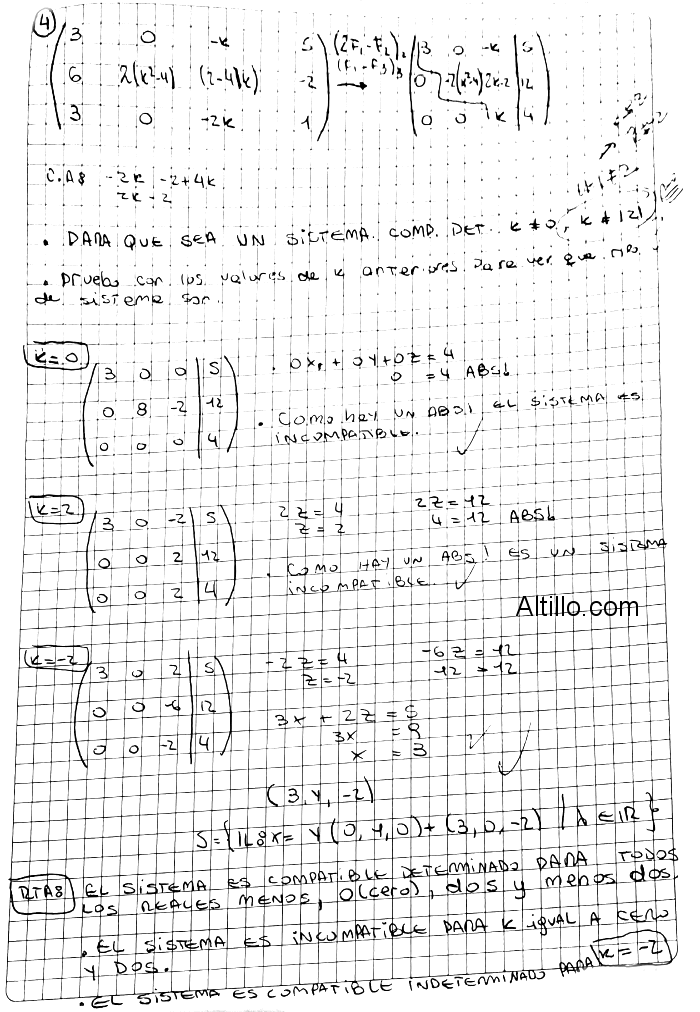 4
3 0 -k 5 (2F1-F2)2 3 0 -k 5
6 2(k²-4) (2-4k) -2 (F1-F3)3 → 0 -2(k²-4) 2k-2 12
3 0 -2k 1 0 0 k 4
C.A8 -2k -2+4k
2k-2
• PARA QUE SEA UN SISTEMA. COMP. DET. k≠0, k≠|2|
• Pruebo con los valores de k anteriores para ver que
de sistema son.
k=0
3 0 0 5 • 0x + 0y + 0z = 4
0 = 4 ABS!
0 8 -2 12
• Como hay UN ABS! EL SISTEMA ES
INCOMPATIBLE.
0 0 0 4
k=2
3 0 -2 5 2z=4 2z=12
z=2 4=12 ABS!
0 0 2 12
• COMO HAY UN ABS! ES UN SISTEMA
INCOMPATIBLE.
0 0 2 4
Altillo.com
k=-2
3 0 2 5 -2z=4 -6z=12
z=-2 12=12
0 0 -6 12
3x + 2z = 5
0 0 -2 4 3x = 9
x = 3
(3, y, -2)
y(0,1,0)+(3,0,-2)
RTA8 EL SISTEMA ES COMPATIBLE DETERMINADO PARA TODOS
LOS REALES MENOS, 0(cero), dos y menos dos.
• EL SISTEMA ES INCOMPATIBLE PARA K igual A CERO
Y DOS.
• EL SISTEMA ES COMPATIBLE INDETERMINADO PARA k=-2